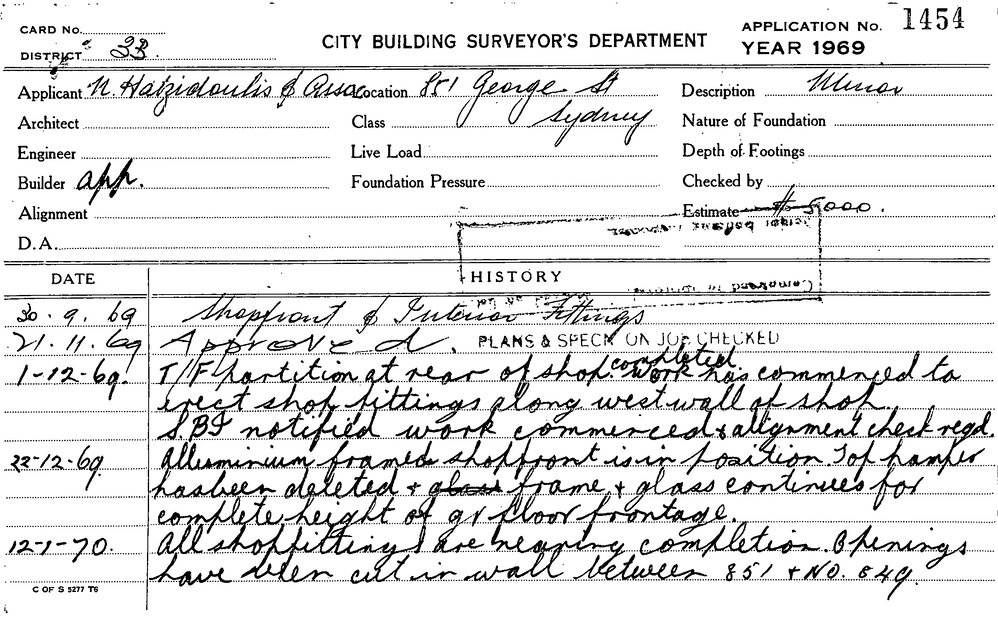 CARD No.
DISTRICT 3B.
CITY BUILDING SURVEYOR'S DEPARTMENT
APPLICATION No. 1454
YEAR 1969
Applicant N. Hatzidoulis & Assoc
Location 851 George St
Sydney
Description Minor
Architect
Class
Nature of Foundation
Engineer
Live Load
Depth of Footings
Builder app.
Foundation Pressure
Checked by
Alignment
Estimate $5000.
D.A.
DATE
HISTORY
30.9.69 Shopfront & Interior Fittings
21.11.69 Approved. PLANS & SPECN ON JOB CHECKED
1-12-69. T/F partition at rear of shop completed. Work has commenced to
erect shop fittings along west wall of shop.
S.B.I notified work commenced & alignment check reqd.
22-12-69 Alluminium framed shopfront is in position. Top hamper
has been deleted & glass frame & glass continues for
complete height of gr floor frontage.
12-1-70. All shopfittings are nearing completion. Openings
have been cut in wall between 851 & No. 849.
C OF S 5277 T6